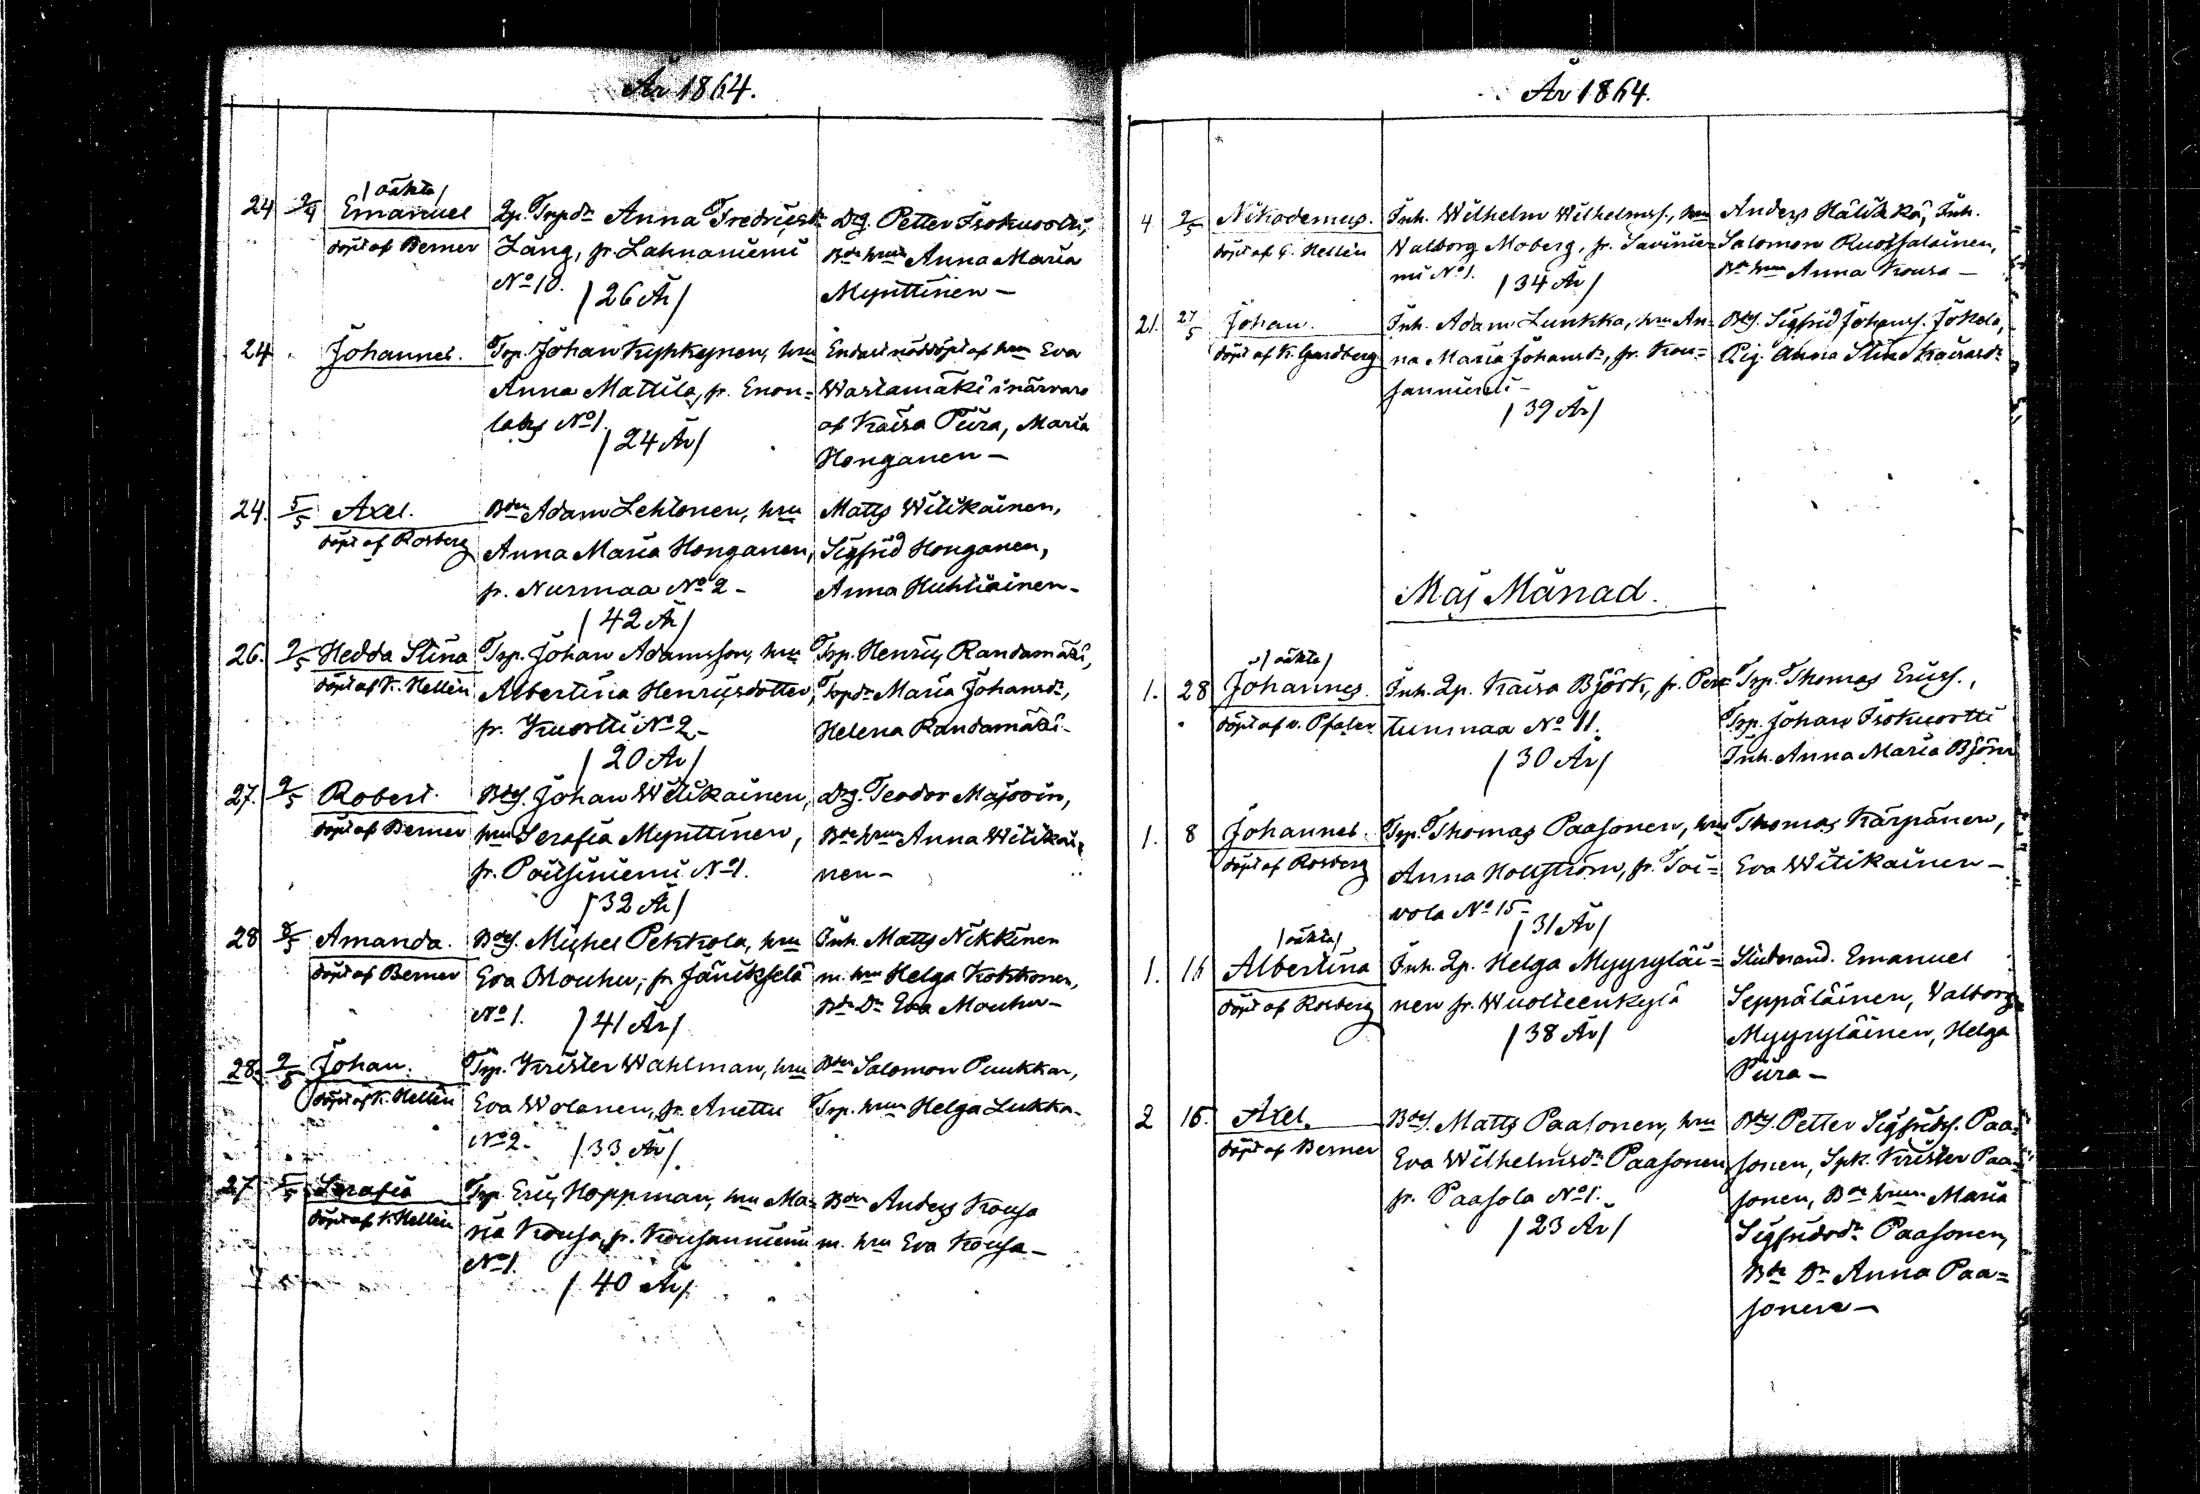 År 1864.
/oäkta/
24 2/4 Emanuel
döpt af Berner
Qp. Trpdr Anna Fredriksdr
Lång, fr. Lahnaniemi
No 10.
/26 År/
Drg. Petter Isokuortti,
Bde hru Anna Maria
Mynttinen —
24 Johannes.
Trp. Johan Kyhkynen, hru
Anna Mattila, fr. Enon=
laks No 1.
/24 År/
Endast nöddöpt af hru Eva
Wartamäki i närvaro
af Kaisa Piira, Maria
Honganen —
24. 5/5 Axel.
döpt af Rosberg
Bden Adam Lehtonen, hru
Anna Maria Honganen,
fr. Nurmaa No 2 -
/42 År/
Matts Witikainen,
Sigfrid Honganen,
Anna Huhtiainen -
26. 2/5 Hedda Stina
döpt af K. Hellén
Trp. Johan Adamsson, hru
Albertina Henriksdotter,
fr. Kuortti No 2 -
/20 År/
Trp. Henrik Randamäki,
Trpdr Maria Johansdr,
Helena Randamäki -
27. 2/5 Robert.
döpt af Berner
Bdes. Johan Witikainen,
hru Serafia Mynttinen,
fr. Poitsiniemi No 1.
/32 År/
Drg. Teodor
Bde hru Anna Witikai=
nen -
28 8/5 Amanda.
döpt af Berner
Bdes. Michel Pekkola, hru
Eva Mouhu, fr.
No 1. /41 År/
Inh. Matts Nikkinen
m. hru Helga Kokkonen,
Bde Dr Eva Mouhu -
28. 2/5 Johan.
döpt af K. Hellén
Trp. Krister Wahlman, hru
Eva Wolanen, fr. Anettu
No 2. /33 År/
Bden Salomon Puukkar,
Trp. hru Helga Lukka -
27 5/5 Serafia
döpt af K. Hellén
Trp. Eric Hoppman, hru Ma=
ria Kousa, fr. Kousanniemi
No 1.
/40 År/
Bden Anders Kousa
m. hru Eva Kousa -
År 1864.
4 2/5 Nikodemus.
döpt af G. Hellén
Inh. Wilhelm Wilhelmss., hru
Walborg Moberg, fr. Savinie=
mi No 1. /34 År/
Anders Hälikkä, Inh.
Salomon Ruotsalainen,
Bde hru Anna Kousa —
21. 27/5 Johan.
döpt af K. Gardberg
Inh. Adam Lunkka, hru An=
na Maria Johansdr, fr. Kou=
sanniemi -
/39 År/
Bdes. Sigfrid Johanss. Jokela,
Pig. Anna Stina
Maj Månad.
/oäkta/
1. 28 Johannes.
döpt af v. Pfaler
Inh. Qp. Kaisa Björk, fr. Per=
tunmaa No 11.
/30 År/
Trp. Thomas Ericss.,
Trp. Johan Isokuortti
Inh. Anna Maria Björn
1. 8 Johannes.
döpt af Rosberg
Trp. Thomas Paasonen, hru
Anna Hollström, fr. Toi=
vola No 15 -
/31 År/
Thomas Kärpänen,
Eva Witikainen —
/oäkta/
1. 16 Albertina
döpt af Rosberg
Inh. Qp. Helga Myyryläi=
nen fr. Wuolteenkylä
/38 År/
Emanuel
Seppäläinen, Valborg
Myyryläinen, Helga
Piira —
2 15. Axel.
döpt af Berner
Bdes. Matts Paasonen, hru
Eva Wilhelmsdr Paasonen
fr. Paasola No 1.
/23 År/
Bdes. Petter Sigfridss. Paa=
sonen, Spk. Krister Paa=
sonen, Bde hrun Maria
Sigfridsdr Paasonen,
Bde Dr Anna Paa=
sonen —